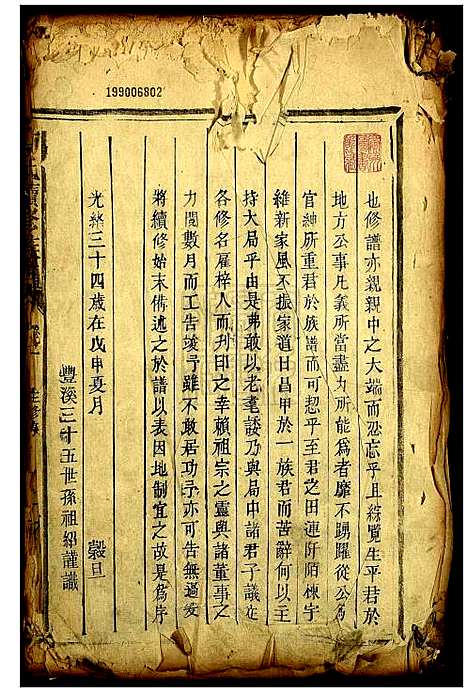 199006802
也修譜亦親親中之大端而忍忘乎且綜覽生平君於
地方公事凡義所當盡力所能為者靡不踴躍從公為
官紳所重君於族譜而可恝乎至君之田連阡陌棟宇
維新家風丕振家道日昌甲於一族君而苦辭何以主
持大局乎由是弗敢以老耄諉乃與局中諸君子議定
各修名雇梓人而刊印之幸賴祖宗之靈與諸董事之
力閱數月而工告竣予雖不敢居功予亦可告無過爰
將續修始末備述之於譜以表因地制宜之故是為序
光緒三十四歲在戊申夏月 穀旦
豐溪三十五世孫祖紹謹識